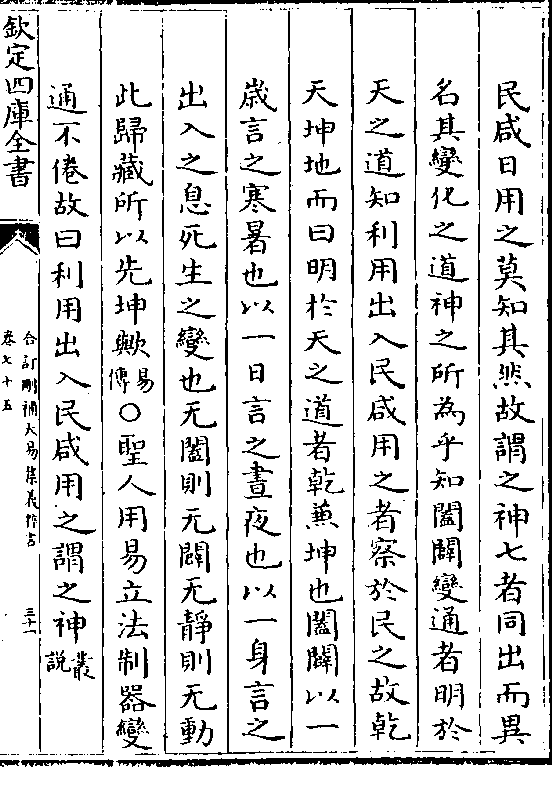 民咸日用之莫知其然故謂之神七者同出而異
名其變化之道神之所為乎知闔闢變通者明於
天之道知利用出入民咸用之者察於民之故乾
天坤地而曰明於天之道者乾兼坤也闔闢以一
歳言之寒暑也以一日言之晝夜也以一身言之
出入之息死生之變也无闔則无闢无靜則无動
此歸藏所以先坤歟易傳○聖人用易立法制器變
通不倦故曰利用出入民咸用之謂之神叢說
欽定四庫全書
合訂刪補大易集義粹言
卷七十五
三十一